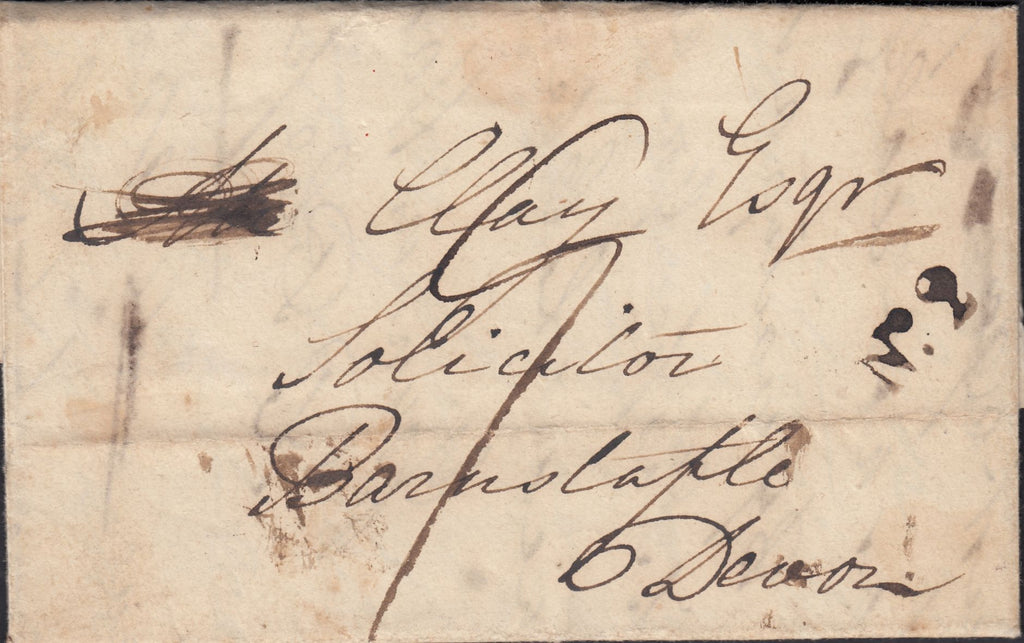 Clay Esqr
Solicitor
Barnstaple
Devon